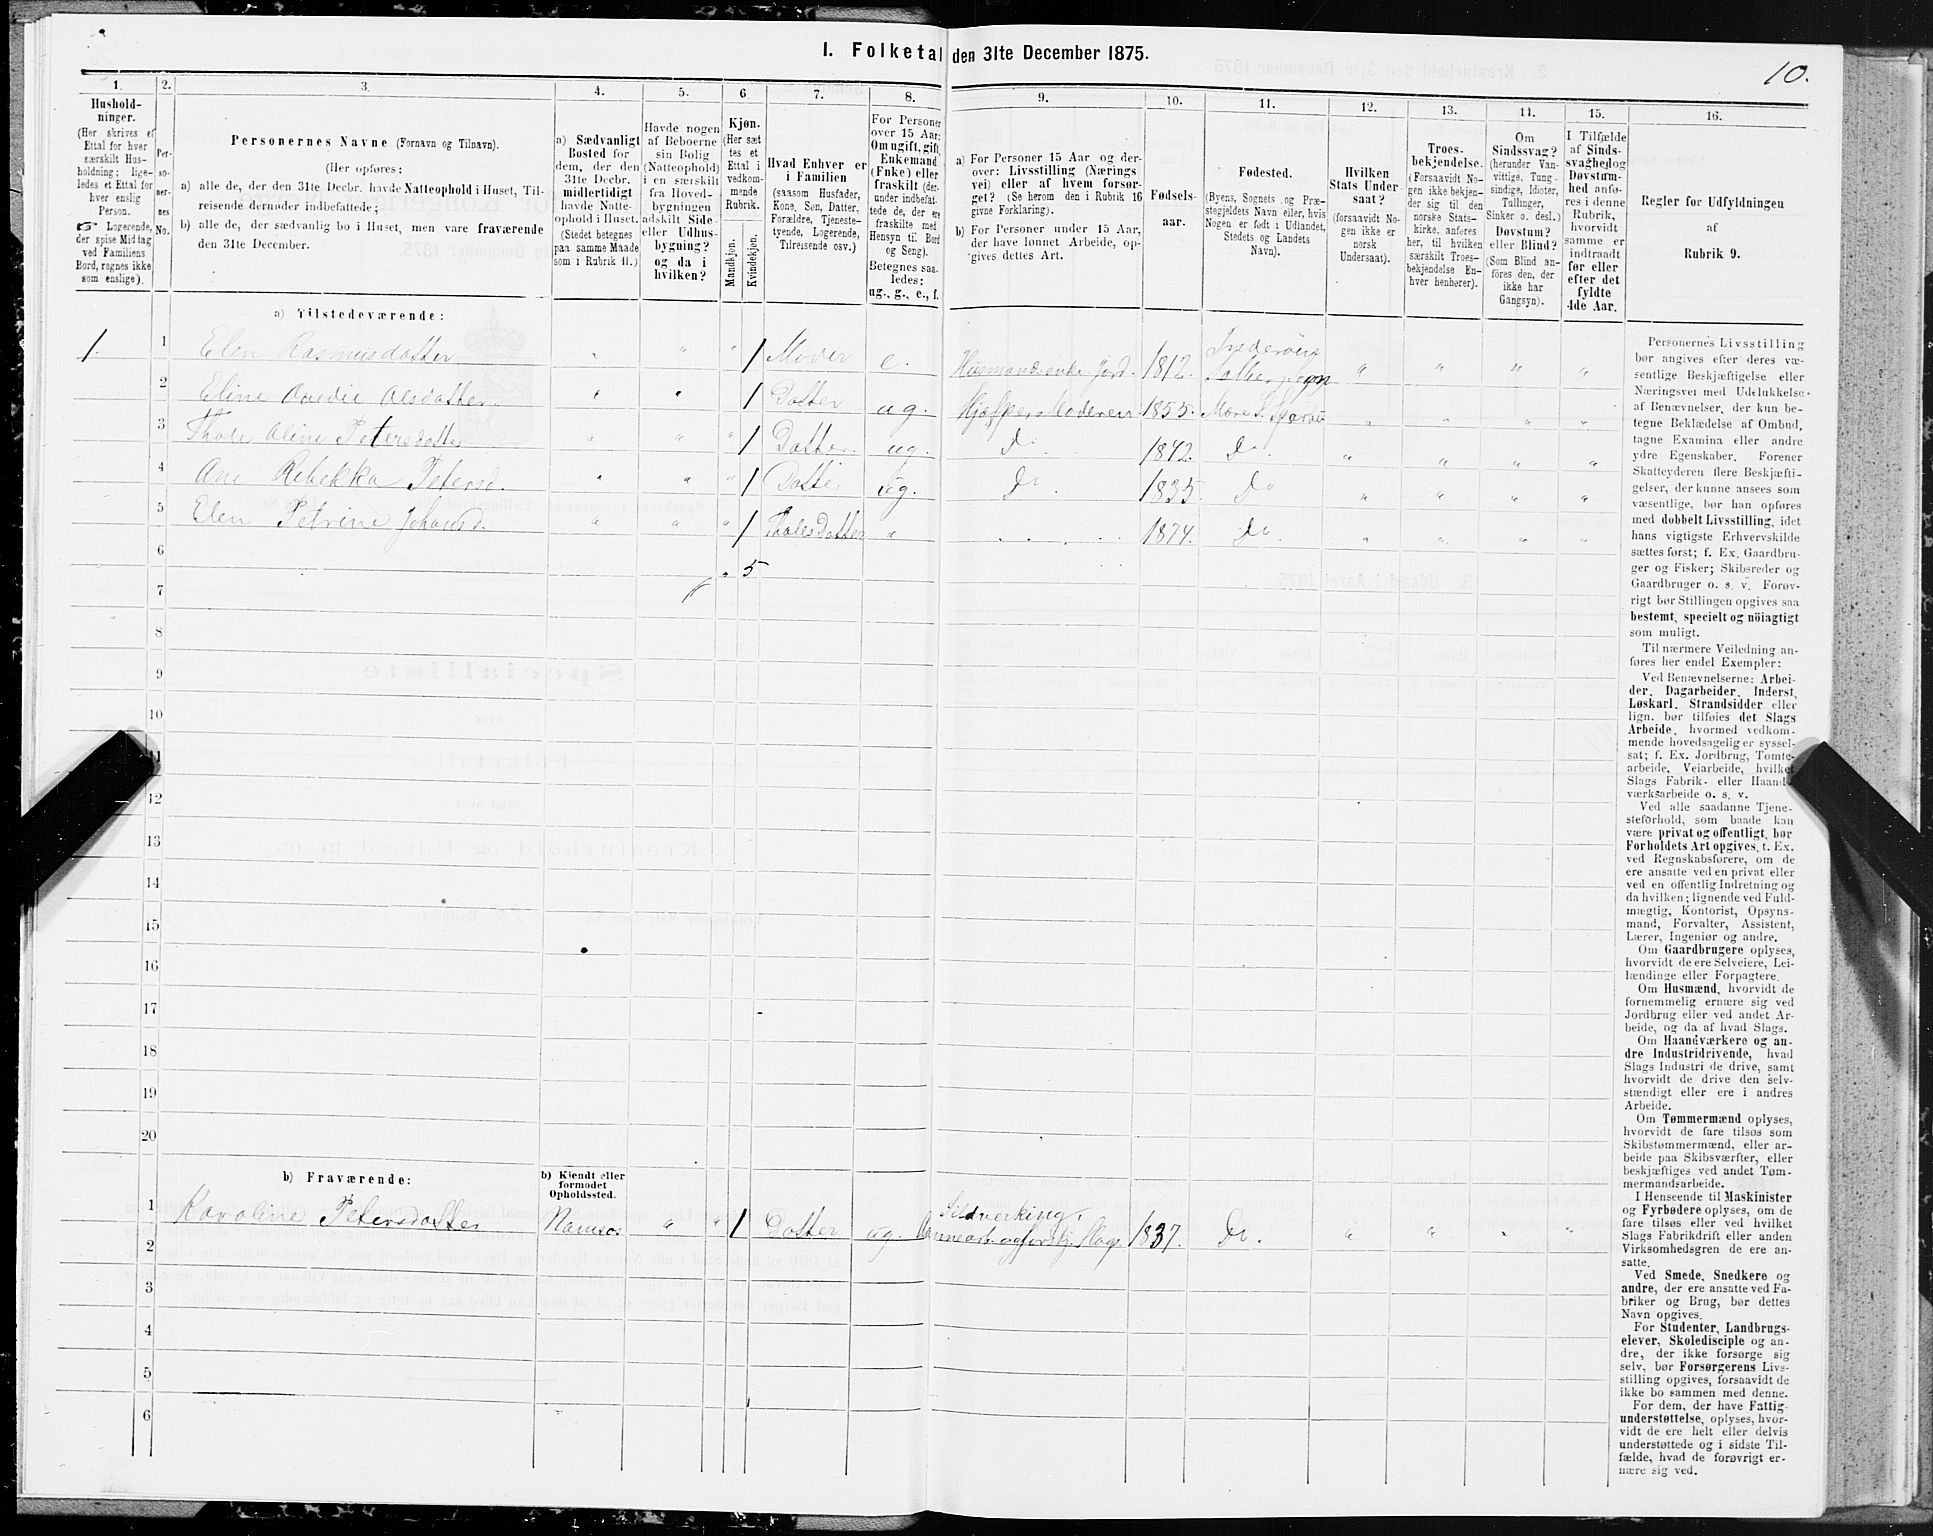 I. Folketal den 31te December 1875.
10.
1.
Hushold-
ninger.
(Her skrives et
Ettal for hver
særskilt Hus-
holdning; lige-
ledes et Ettal for
hver enslig
Person.
Logerende,
der spise Middag
ved Familiens
Bord, regnes ikke
som enslige).
2.
Per-
so-
ner-
nes
No.
3.
Personernes Navne (Fornavn og Tilnavn).
(Her opføres:
a) alle de, der den 31te Decbr. havde Natteophold i Huset, Til-
reisende derunder indbefattede;
b) alle de, der sædvanlig bo i Huset, men vare fraværende
den 31te December.
4.
a) Sædvanligt
Bosted for
dem, der den
31te Decbr.
midlertidigt
havde Natte-
ophold i Huset.
(Stedet betegnes
paa samme Maade
som i Rubrik 11.)
5.
Havde nogen
af Beboerne
sin Bolig
(Natteophold)
i en særskilt
fra Hoved-
bygningen
adskilt Side-
eller Udhus-
bygning?
og da i
hvilken?
6
Kjøn.
(Her sæt
tes et
Ettal i
vedkom-
mende
Rubrik.
Mandkjøn.
Kvindekjøn.
7.
Hvad Enhver er
i Familien
(saasom Husfader,
Kone, Søn, Datter,
Forældre, Tjeneste-
tyende, Logerende,
Tilreisende osv.)
8.
For Personer
over 15 Aar:
Om ugift, gift,
Enkemand
(Enke) eller
fraskilt (der-
under indbefat-
tede de, der ere
fraskilte med
Hensyn til Bord
og Seng).
Betegnes saa-
ledes:
ug., g., e., f.
9.
a) For Personer 15 Aar og der-
over: Livsstilling (Nærings-
vei) eller af hvem forsør-
get? (Se herom den i Rubrik 16
givne Forklaring).
b) For Personer under 15 Aar,
der have lønnet Arbeide, op-
gives dettes Art.
10.
Fødsels-
aar.
11.
Fødested.
(Byens, Sognets og Præ-
stegjeldets Navn eller, hvis
Nogen er født i Udlandet,
Stedets og Landets
Navn).
12.
Hvilken
Stats Under-
saat?
(forsaavidt No-
gen ikke er
norsk
Undersaat).
13.
Troes-
bekjendelse.
(Forsaavidt No-
gen ikke bekjen-
der sig til den
norske Stats-
kirke, anføres
her, til hvilken
særskilt Troes-
bekjendelse En-
hver henhører).
14.
Om
Sindssvag?
(herunder Van-
vittige, Tung-
sindige, Idioter,
Tullinger,
Sinker o. desl.)
Døvstum?
eller Blind?
(Som Blind an-
føres den, der
ikke har
Gangsyn).
15.
I Tilfælde
af Sinds-
svaghed og
Døvstum-
hed anfø-
res i denne
Rubrik,
hvorvidt
samme er
indtraadt
før eller
efter det
fyldte
4de Aar.
16.
Regler for Udfyldningen
af
Rubrik 9.
a) Tilstedeværende:
1. 1 Elen Rasmusdatter " " 1 Moder e. Husmandsenke Jord. 1812. " " " "
2 Eline Olsdatter 1 Datter ug. Hjælper Moderen 1855. "
3 Thale Oline Petersdatter " " " 1 Datter. ug. Do. 1842. Do. " " " "
4 Ane Rebekka Petersd. " " " 1 Datter ug. Do. 1835. Do " " " "
5 Elen Petrine Johansd. " " " 1 Thales Datter " 1874. Do. " " " "
6 " 5
7
8
9
10
11
12
13
14
15
16
17
18
19
20
b) Fraværende:
b) Kjendt eller
formodet
Opholdssted.
Sildverking,
1 Karoline Petersdatter Namsos " " 1 Datter ug. 1837. Do. " " " "
2
3
4
5
6
Personernes Livsstilling
bør angives efter deres væ-
sentlige Beskjæftigelse eller
Næringsvei med Udelukkelse
af Benævnelser, der kun be-
tegne Beklædelse af Ombud,
tagne Examina eller andre
ydre Egenskaber. Forener
Skatteyderen flere Beskjæfti-
gelser, der kunne ansees som
væsentlige, bør han opføres
med dobbelt Livsstilling, idet
hans vigtigste Erhvervskilde
sættes først; f. Ex. Gaardbru-
ger og Fisker; Skibsreder og
Gaardbruger o. s. v. Forøv-
rigt bør Stillingen opgives saa
bestemt, specielt og nöiagtigt
som muligt.
Til nærmere Veiledning an-
føres her endel Exempler:
Ved Benævnelserne: Arbei-
der, Dagarbeider, Inderst,
Løskarl, Strandsidder eller
lign. bør tilføies det Slags
Arbeide, hvormed vedkom-
mende hovedsagelig er syssel-
sat; f. Ex. Jordbrug, Tomte-
arbeide, Veiarbeide, hvilket
Slags Fabrik- eller Haand-
værksarbeide o. s. v.
Ved alle saadanne Tjene-
steforhold, som baade kan
være privat og offentligt, bør
Forholdets Art opgives, t. Ex.
ved Regnskabsførere, om de
ere ansatte ved en privat eller
ved en offentlig Indretning og
da hvilken; lignende ved Fuld-
mægtig, Kontorist, Opsyns-
mand, Forvalter, Assistent,
Lærer, Ingeniør og andre.
Om Gaardbrugere oplyses,
hvorvidt de ere Selveiere, Lei-
lændinge eller Forpagtere.
Om Husmænd, hvorvidt de
fornemmelig ernære sig ved
Jordbrug eller ved andet Ar-
beide, og da af hvad Slags.
Om Haandværkere og an-
dre Industridrivende, hvad
Slags Industri de drive, samt
hvorvidt de drive den selv-
stændigt eller ere i andres
Arbeide.
Om Tømmermænd oplyses,
hvorvidt de fare tilsøs som
Skibstømmermænd, eller ar-
beide paa Skibsværfter, eller
beskjæftiges ved andet Tøm-
mermandsarbeide.
I Henseende til Maskinister
og Fyrbødere oplyses, om de
fare tilsøs eller ved hvilket
Slags Fabrikdrift eller anden
Virksomhedsgren de ere an-
satte.
Ved Smede, Snedkere og
andre, der ere ansatte ved Fa-
briker og Brug, bør dettes
Navn opgives.
For Studenter, Landbrugs-
elever, Skoledisciple og an-
dre, der ikke forsørge sig
selv, bør Forsørgerens Livs-
stilling opgives, forsaavidt de
ikke bo sammen med denne.
For dem, der have Fattig-
understøttelse, oplyses, hvor-
vidt de ere helt eller delvis
understøttede og i sidste Til-
fælde, hvad de forøvrigt er-
nære sig ved.